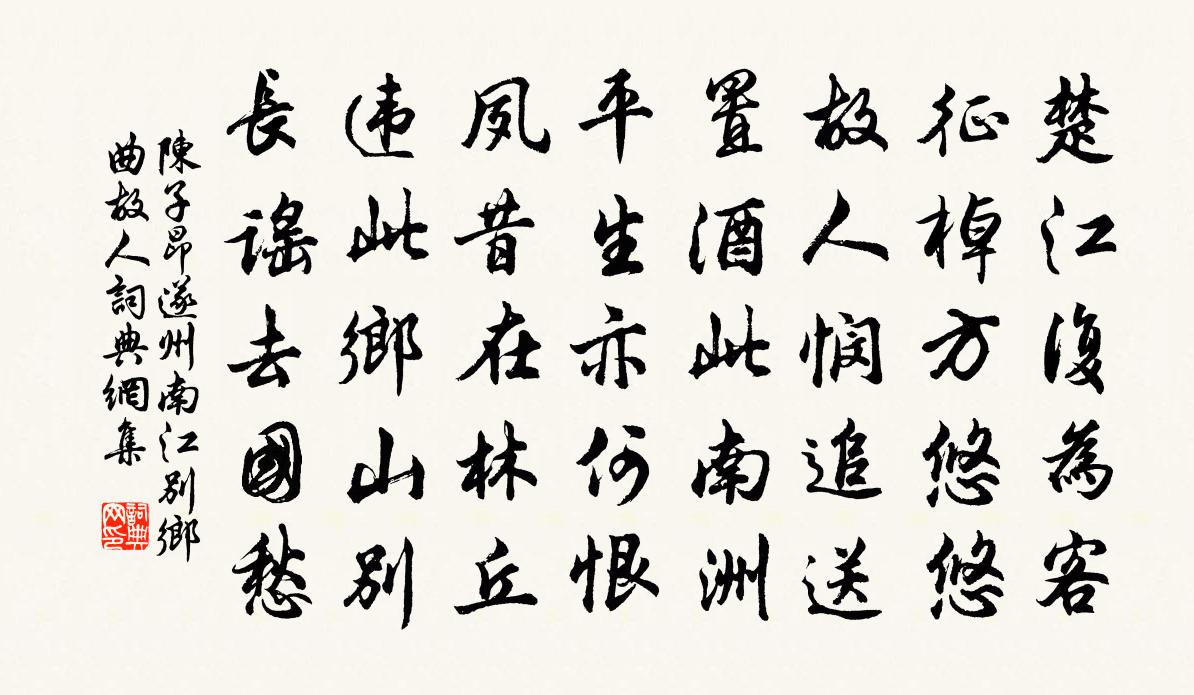 楚江復為客
征棹方悠悠
故人憫追送
置酒此南洲
平生亦何恨
夙昔在林丘
违此鄉山別
長謠去國愁
陳子昂遂州南江別鄉
曲故人詞典網集
詞典
网印